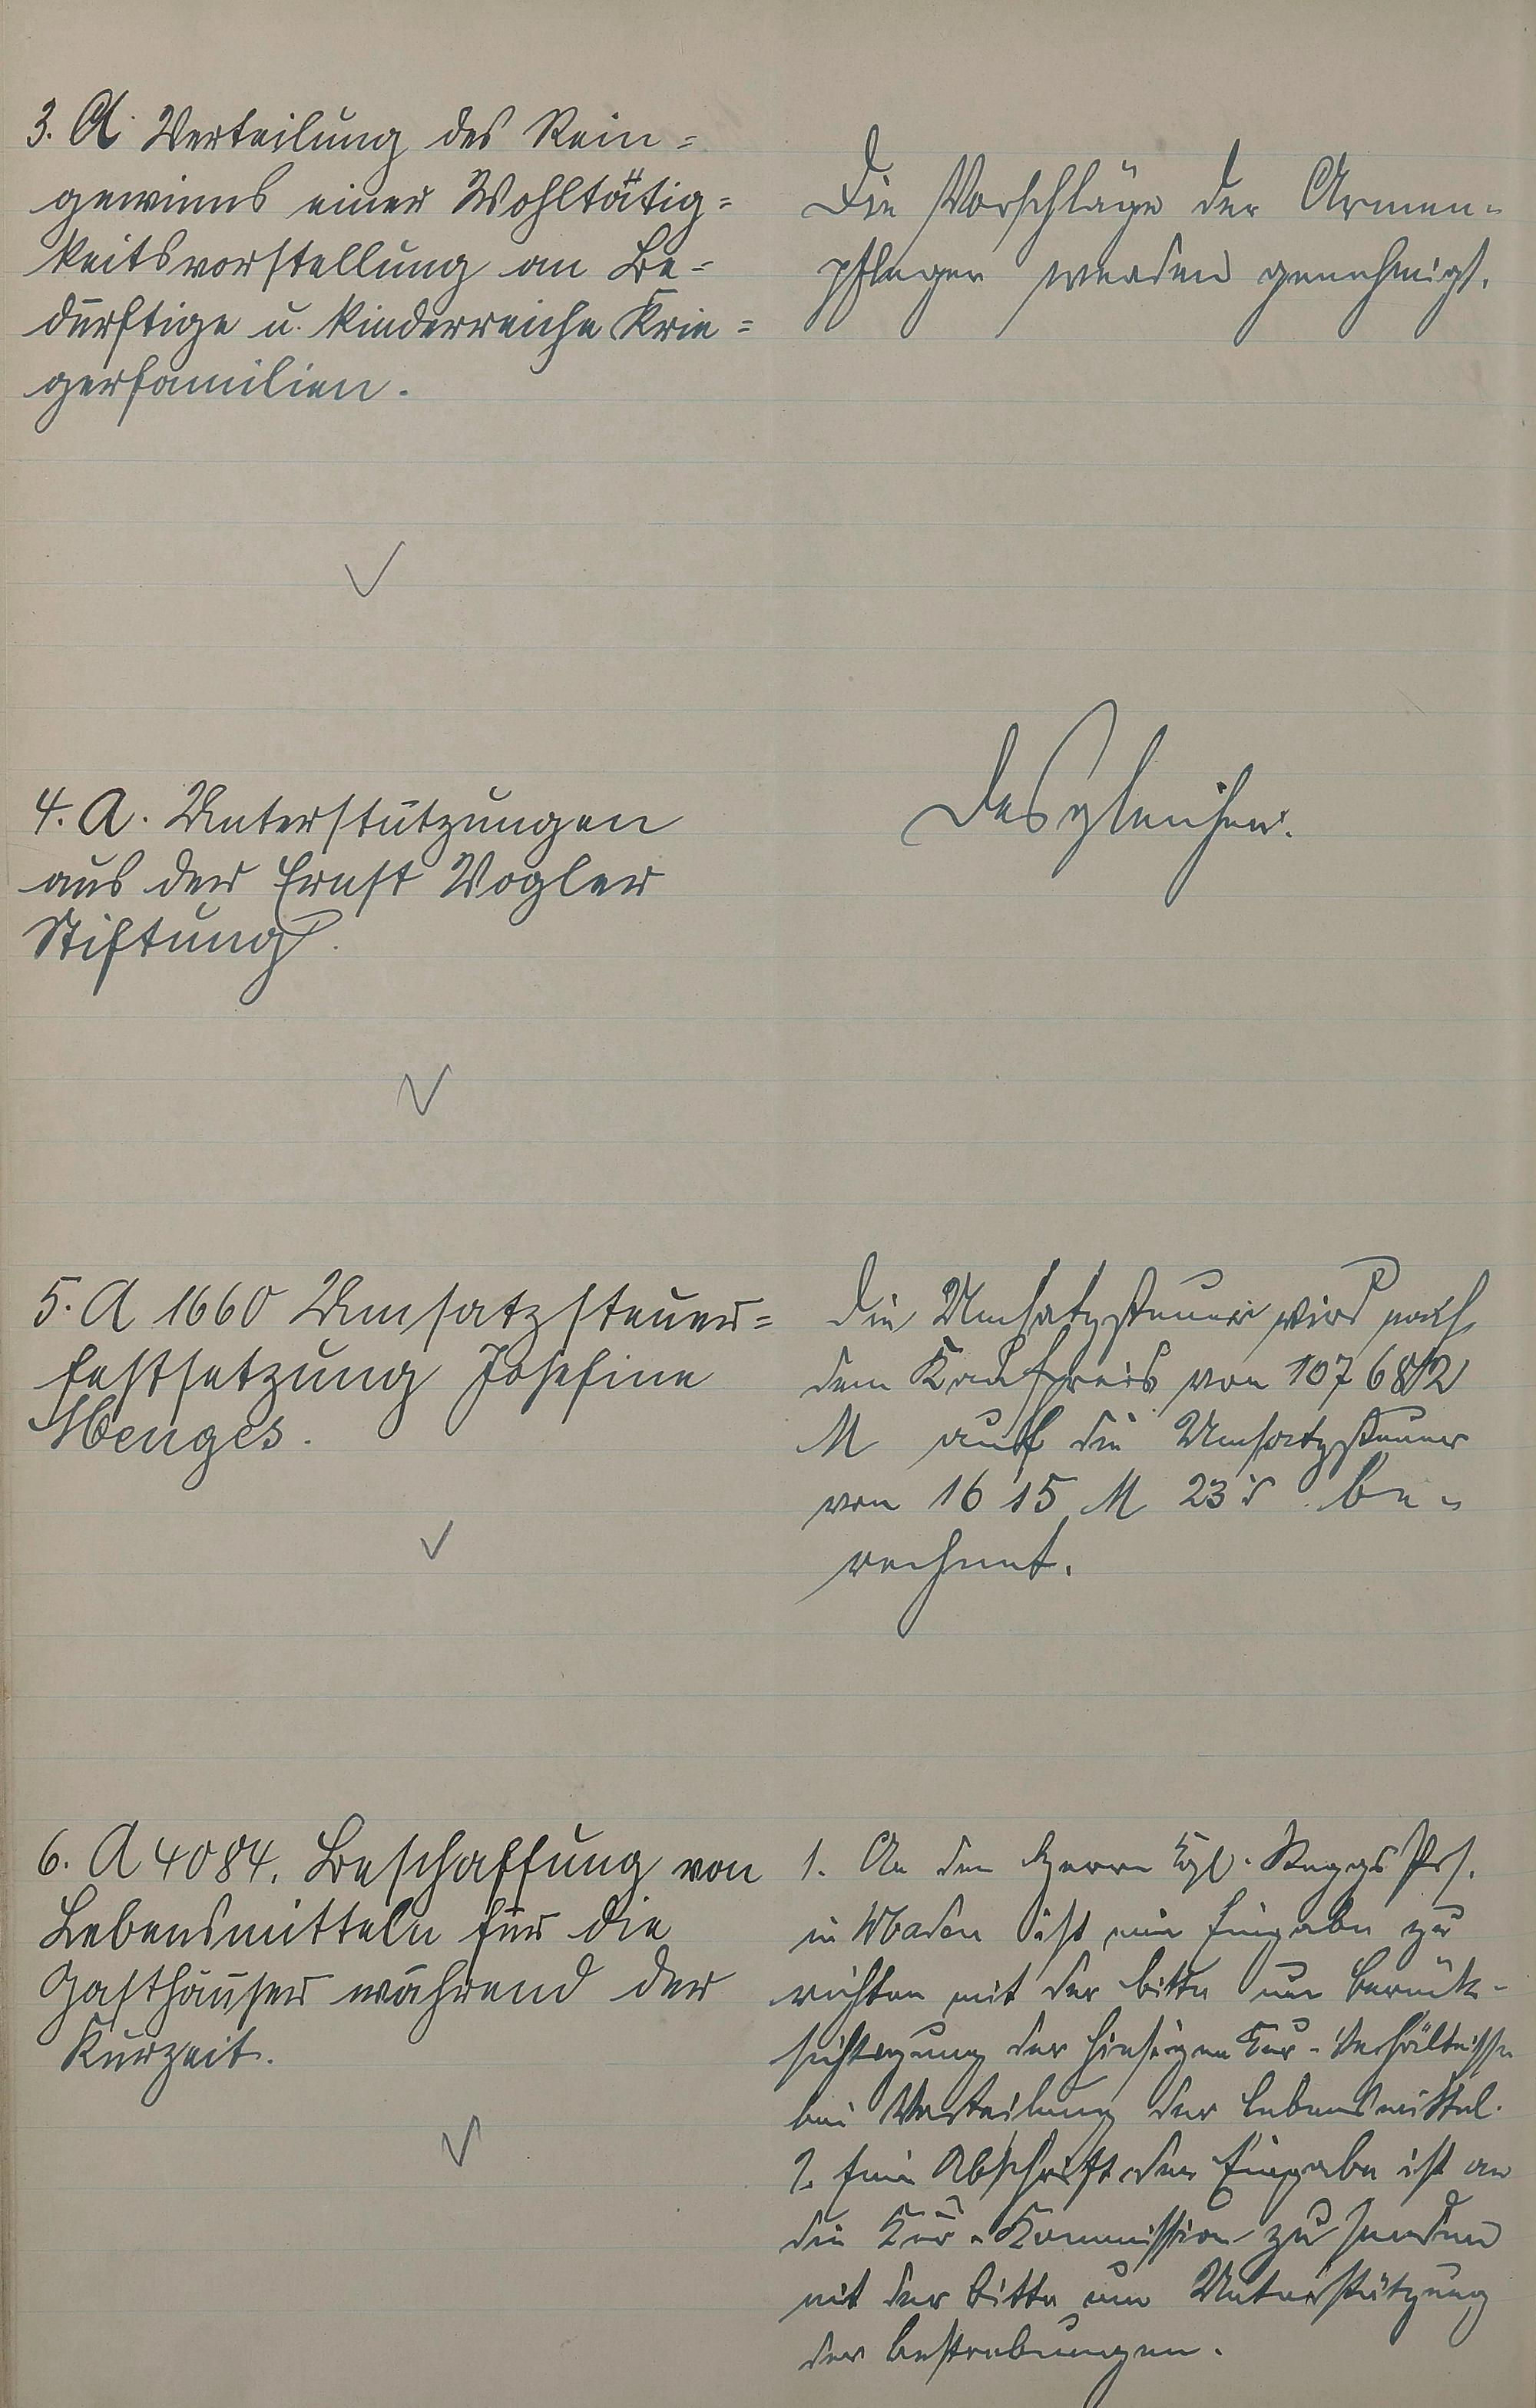 3. A. Verteilung des Rein=
gewinns einer Wohltätig=
keitsvorstellung an Be=
dürftige u. kinderreiche Krie=
gerfamilien.
Die Vorschläge der Armen-
pfleger werden genehmigt.
4. A. Unterstützungen
aus der Ernst Vogler
Stiftung.
Desgleichen.
5. A 1660 Umsatzsteuer=
festsetzung Josefine
Menges.
Die Umsatzsteuer wird nach
dem Kaufpreis von 107682
M auf die Umsatzsteuer
von 1615 M 23 ₰ be-
rechnet.
6. A 4084. Beschaffung von
Lebensmitteln für die
Gasthäuser während der
Kurzeit.
1. An den Herrn Kgl. Reggs Prs.
in Wbaden ist eine Eingabe zu
richten mit der Bitte um Berück-
sichtigung der hiesigen Kur-Verhältnisse
bei Verteilung der Lebensmittel.
2. Eine Abschrift der Eingabe ist an
die Kur-Kommission zu senden
mit der Bitte um Unterstützung
der Bestrebungen.